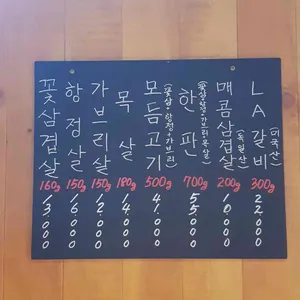 꽃삼겹살
160g
13000
항정살
150g
16000
가브리살
150g
목살
180g
14000
모듬고기
(꽃살+항정+가브리)
500g
41000
한판
(꽃살+항정+가브리+목살)
700g
55000
매콤삼겹살
(독일산)
200g
10000
LA갈비
(미국산)
300g
22000